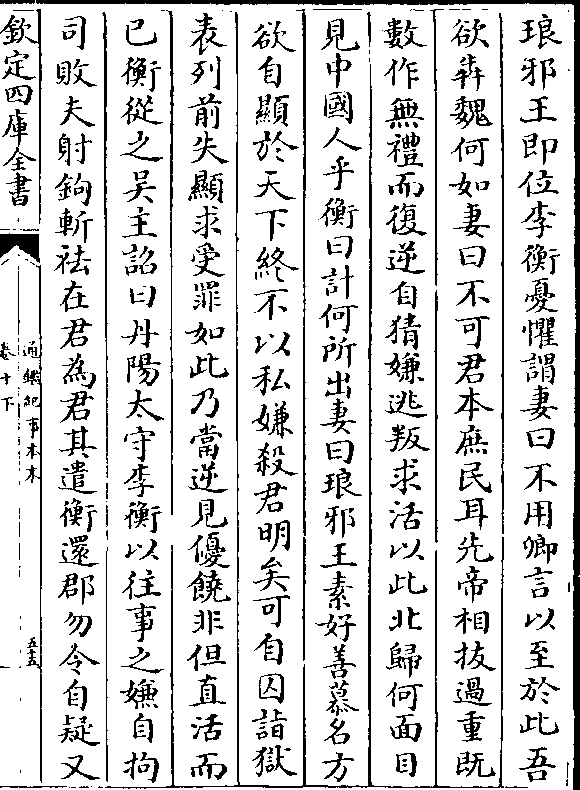 琅邪王即位李衡憂懼謂妻曰不用卿言以至於此吾
欲犇魏何如妻曰不可君本庶民耳先帝相拔過重既
數作無禮而復逆自猜嫌逃叛求活以此北歸何面目
見中國人乎衡曰計何所出妻曰琅邪王素好善慕名方
欲自顯於天下終不以私嫌殺君明矣可自囚詣獄
表列前失顯求受罪如此乃當逆見優饒非但直活而
已衡從之吳主詔曰丹陽太守李衡以往事之嫌自拘
司敗夫射鉤斬袪在君為君其遣衡還郡勿令自疑又
欽定四庫全書
通鑑紀事本末
卷十下
五十五